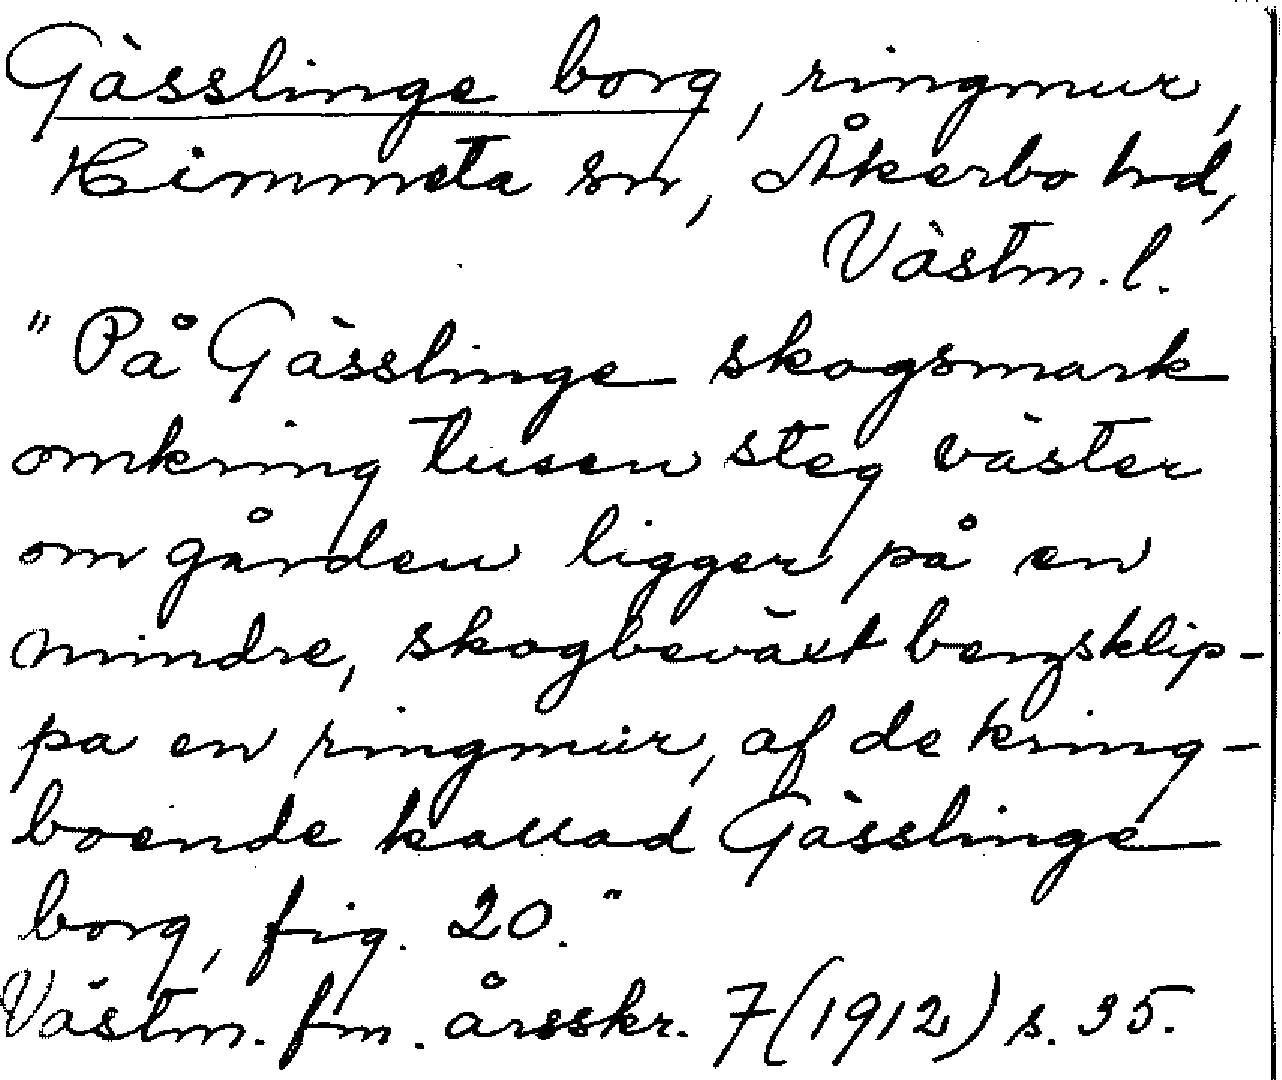 Gässlinge borg, ringmur,
Himmeta sn, Åkerbo hd,
Västm. l.
"På Gässlinge skogsmark
omkring tusen steg väster
om gården ligger på en
mindre, skogbeväxt bergsklip-
pa en ringmur, af de kring-
boende kallad Gässlinge
borg, fig. 20."
Västm. fm. årsskr. 7 (1912) s. 35.